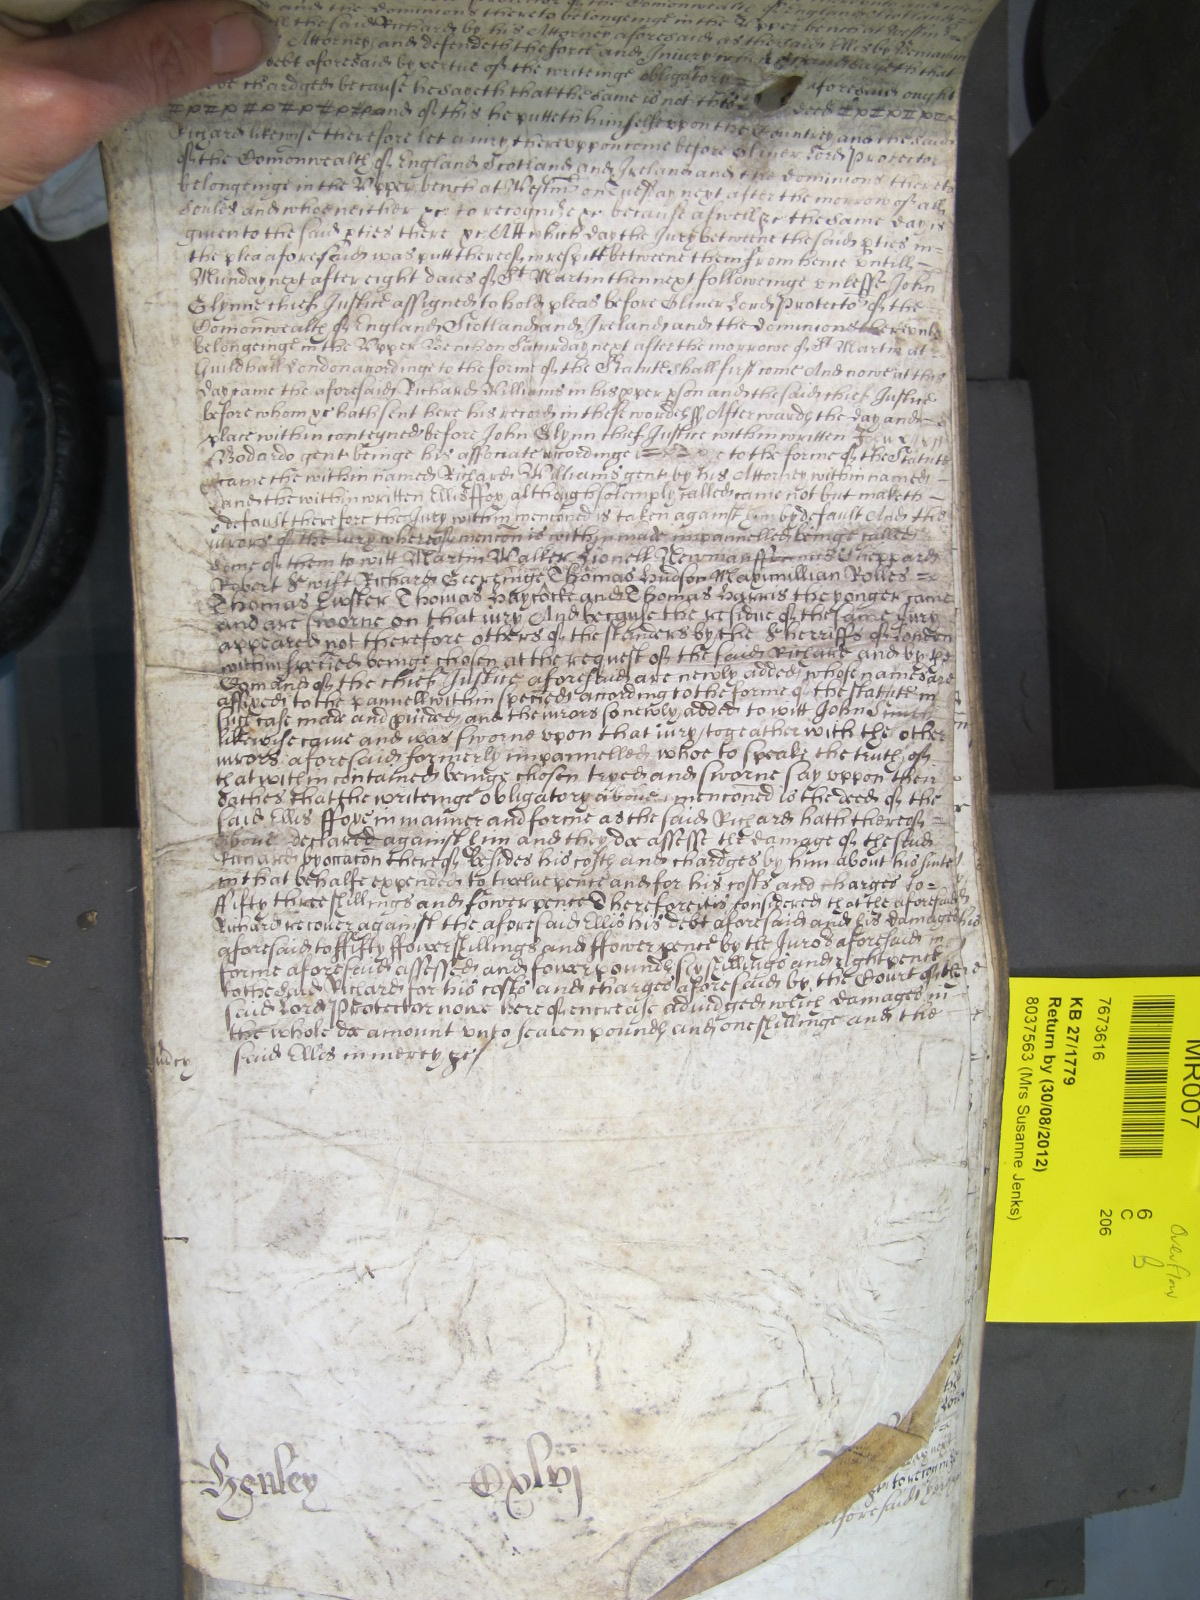 and the dominions thereto belongeinge in the Upper bench at Westm
the said Richard by his Attorney aforesaid as the said Ellis by
Attorney and defendeth the force and Injury when &c And sayeth that
debt aforesaid by vertue of the writeinge obligatory aforesaid ought
chardged because he sayeth that the same is not his deed
and of this he putteth himselfe upon the Countrey and the said
Richard likewise therefore let a iury thereuppon come before Oliver Lord Protector
of the Comonwealth of England Scotland and Ireland and the dominions thereto
belongeinge in the Upper bench at Westmr on Tuesday next after the morrow of all
Soules and whoe neither &c to recognize &c because aswell &c the same day is
given to the said pties there &c Att which day the Jury betweene the said pties in
the plea aforesaid was putt thereof in respitt betweene them from hence untill
Munday next after eight daies of St Martin then next followeinge unlesse John
Glynne chief Justice assigned to hold pleas before Oliver Lord Protector of the
Comonwealth of England Scotland and Ireland and the dominions thereunto
belongeinge in the Upper Bench on Saturday next after the morrowe of St Martin at
Guildhall London accordinge to the forme of the Statute shall first come And nowe at this
day came the aforesaid Richard Williams in his pper pson and the said chief Justice
before whom &c hath sent here his record in these wordes ss Afterwards the day and
place within conteyned before John Glynn chief Justice within written
Godardo gent beinge his associate accordinge to the forme of the Statute
came the within named Richard Williams gent by his Attorney within named
and the within written Ellis ffox although solemply called came not but maketh
default therefore the Jury within menconed is taken against him by default And the
iurors of the iury whereof mencon is within made impannelled beinge called
some of them to witt Martin Walker Lionell Newman Sheppard
Robert Swift Richard Thomas Hudson Maximillian Rolles
Thomas Luster Thomas Haycocke and Thomas Harris the yonger came
and are sworne on that iury And because the residue of the same Jury
appeared not therefore others of the standers by the Sherriffs of London
within specied beinge chosen at the request of the said Richard and by the
Comand of the chief Justice aforesaid are newly added whose names are
affixed to the pannell within specied accordinge to the forme of the statute in
such case made and pvided and the iurors so newly added to witt John Smith
likewise came and was sworne upon that iury together with the other
iurors aforesaid formerly impannelled whoe to speake the truth of
that within contained beinge chosen tryed and sworne say uppon their
oathes that the writeinge obligatory above menconed is the deed of the
said Ellis ffoxe in manner and forme as the said Richard hath thereof
above declared against him and they doe assesse the damage of the said
Richard by occacon thereof besides his costs and chardges by him about his suite
in that behalfe expended to twelve pence and for his costs and charges to
ffifty three shillings and fower pence Therefore it is considered that the aforesaid
Richard recover against the aforesaid Ellis his debt aforesaid and his damages
aforesaid to ffifty ffower shillings and ffower pence by the Jurors aforesaid in
forme aforesaid assessed and fower pounds six shillings and eight pence
to the said Richard for his costs and charges aforesaid by the Court of the
said Lord Protector nowe here of encrease adiudged which damages in
the whole doe amount unto seaven pounds and one shillinge and the
said Ellis in mercy &c
Henley Cxlvj
MR007
7673616 206
KB 27/1779
Return by (30/08/2012)
8037563 (Mrs Susanne Jenks)
6
C
Overflow